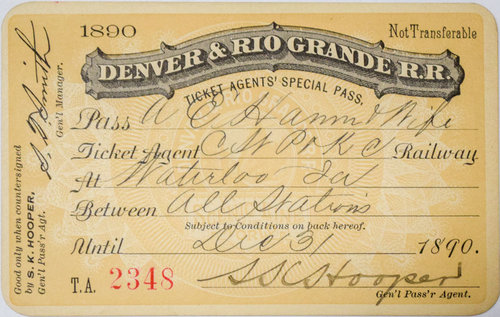 1890 Not Transferable
DENVER & RIO GRANDE R.R.
TICKET AGENTS' SPECIAL PASS.
Pass A E Hamm & Wife
Ticket Agent C St P & K C Railway
At Waterloo Ia
Between All Stations
Subject to Conditions on back hereof.
Until Dec 31 1890.
T.A. 2348 S K Hooper
Gen'l Pass'r Agent.
Good only when countersigned
by S. K. HOOPER,
Gen'l Pass'r Agt.
Smith
Gen'l Manager.